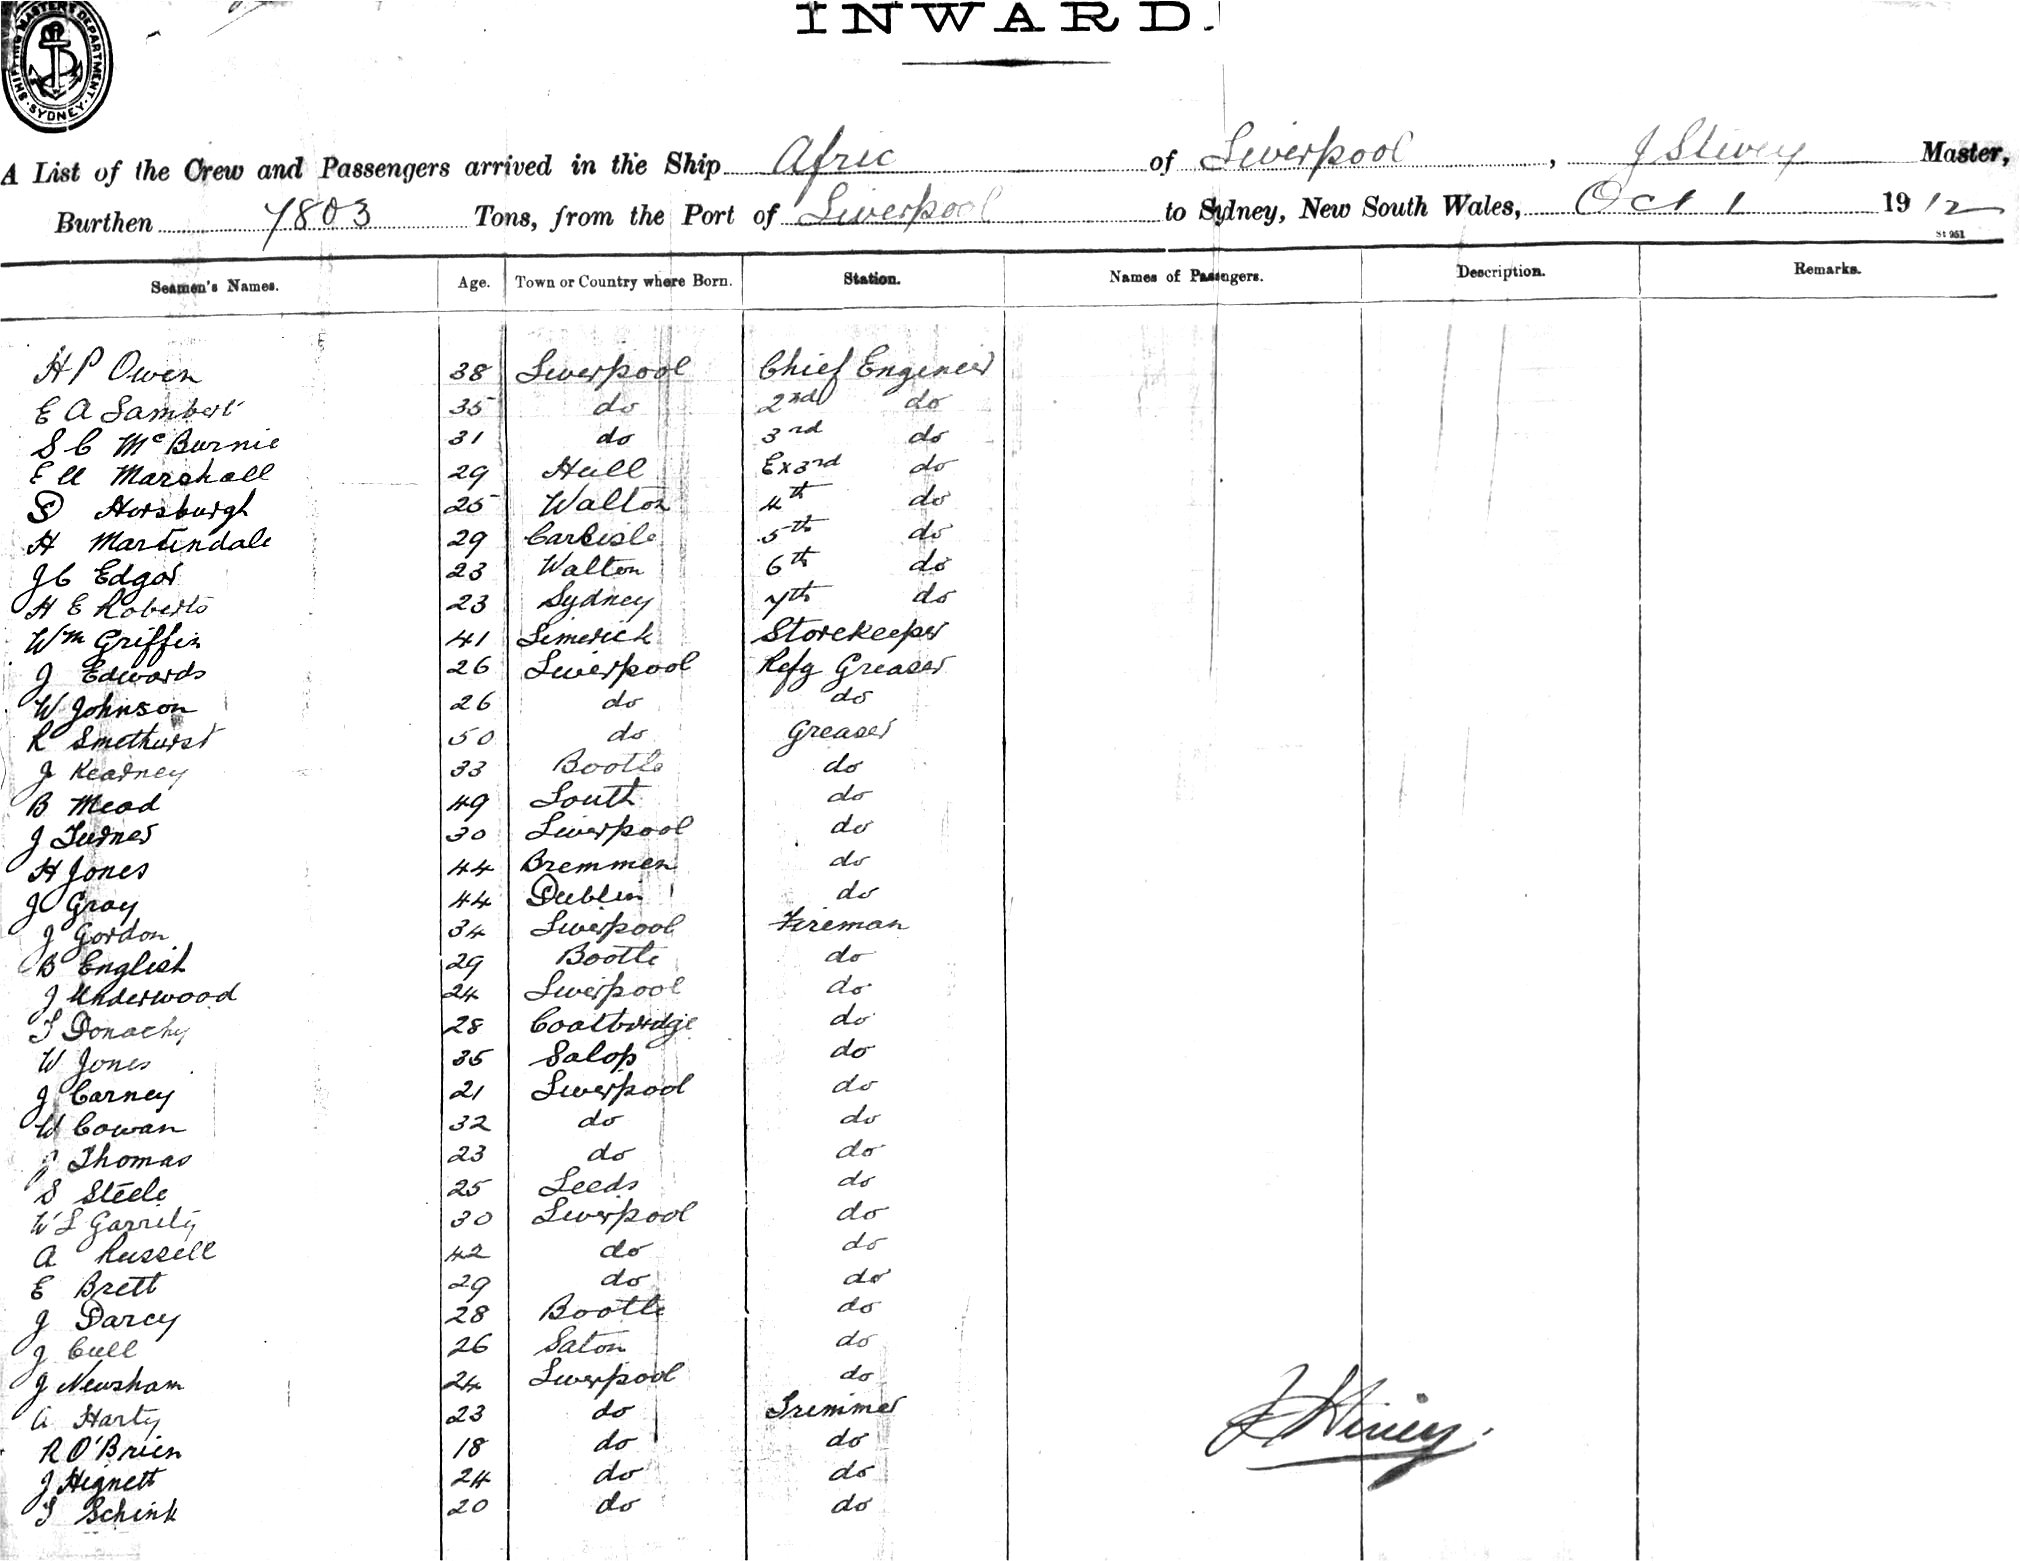 SHIPPING MASTER'S DEPARTMENT. SYDNEY
INWARD.
A List of the Crew and Passengers arrived in the Ship Afric of Liverpool, J Stivey Master,
Burthen 7803 Tons, from the Port of Liverpool to Sydney, New South Wales, Oct 1 1912
St 951
Seamen's Names. Age. Town or Country where Born. Station. Names of Passengers. Description. Remarks.
H P Owen 38 Liverpool Chief Engineer
E A Lambert 35 do 2nd do
S C McBurnie 31 do 3rd do
E U Marshall 29 Hull Ex3rd do
D Horsburgh 25 Walton 4th do
H Martindale 29 Carlisle 5th do
J C Edgar 23 Walton 6th do
H E Roberts 23 Sydney 7th do
Wm Griffin 41 Limerick Storekeeper
J Edwards 26 Liverpool Refg Greaser
W Johnson 26 do do
R Smethurst 50 do Greaser
J Kearney 33 Bootle do
B Mead 49 Louth do
J Turner 30 Liverpool do
H Jones 44 Bremmen do
J Gray 44 Dublin do
J Gordon 34 Liverpool Fireman
B English 29 Bootle do
J Underwood 24 Liverpool do
T Donachy 28 Coatbridge do
W Jones 35 Salop do
J Carney 21 Liverpool do
W Cowan 32 do do
J Thomas 23 do do
S Steele 25 Leeds do
W L Garrity 30 Liverpool do
A Russell 42 do do
E Brett 29 do do
J Darcy 28 Bootle do
J Cull 26 Saton do
J Newsham 24 Liverpool do
A Harty 23 do Trimmer
R O'Brien 18 do do
J Hignett 24 do do
T Schink 20 do do
J Stivey.